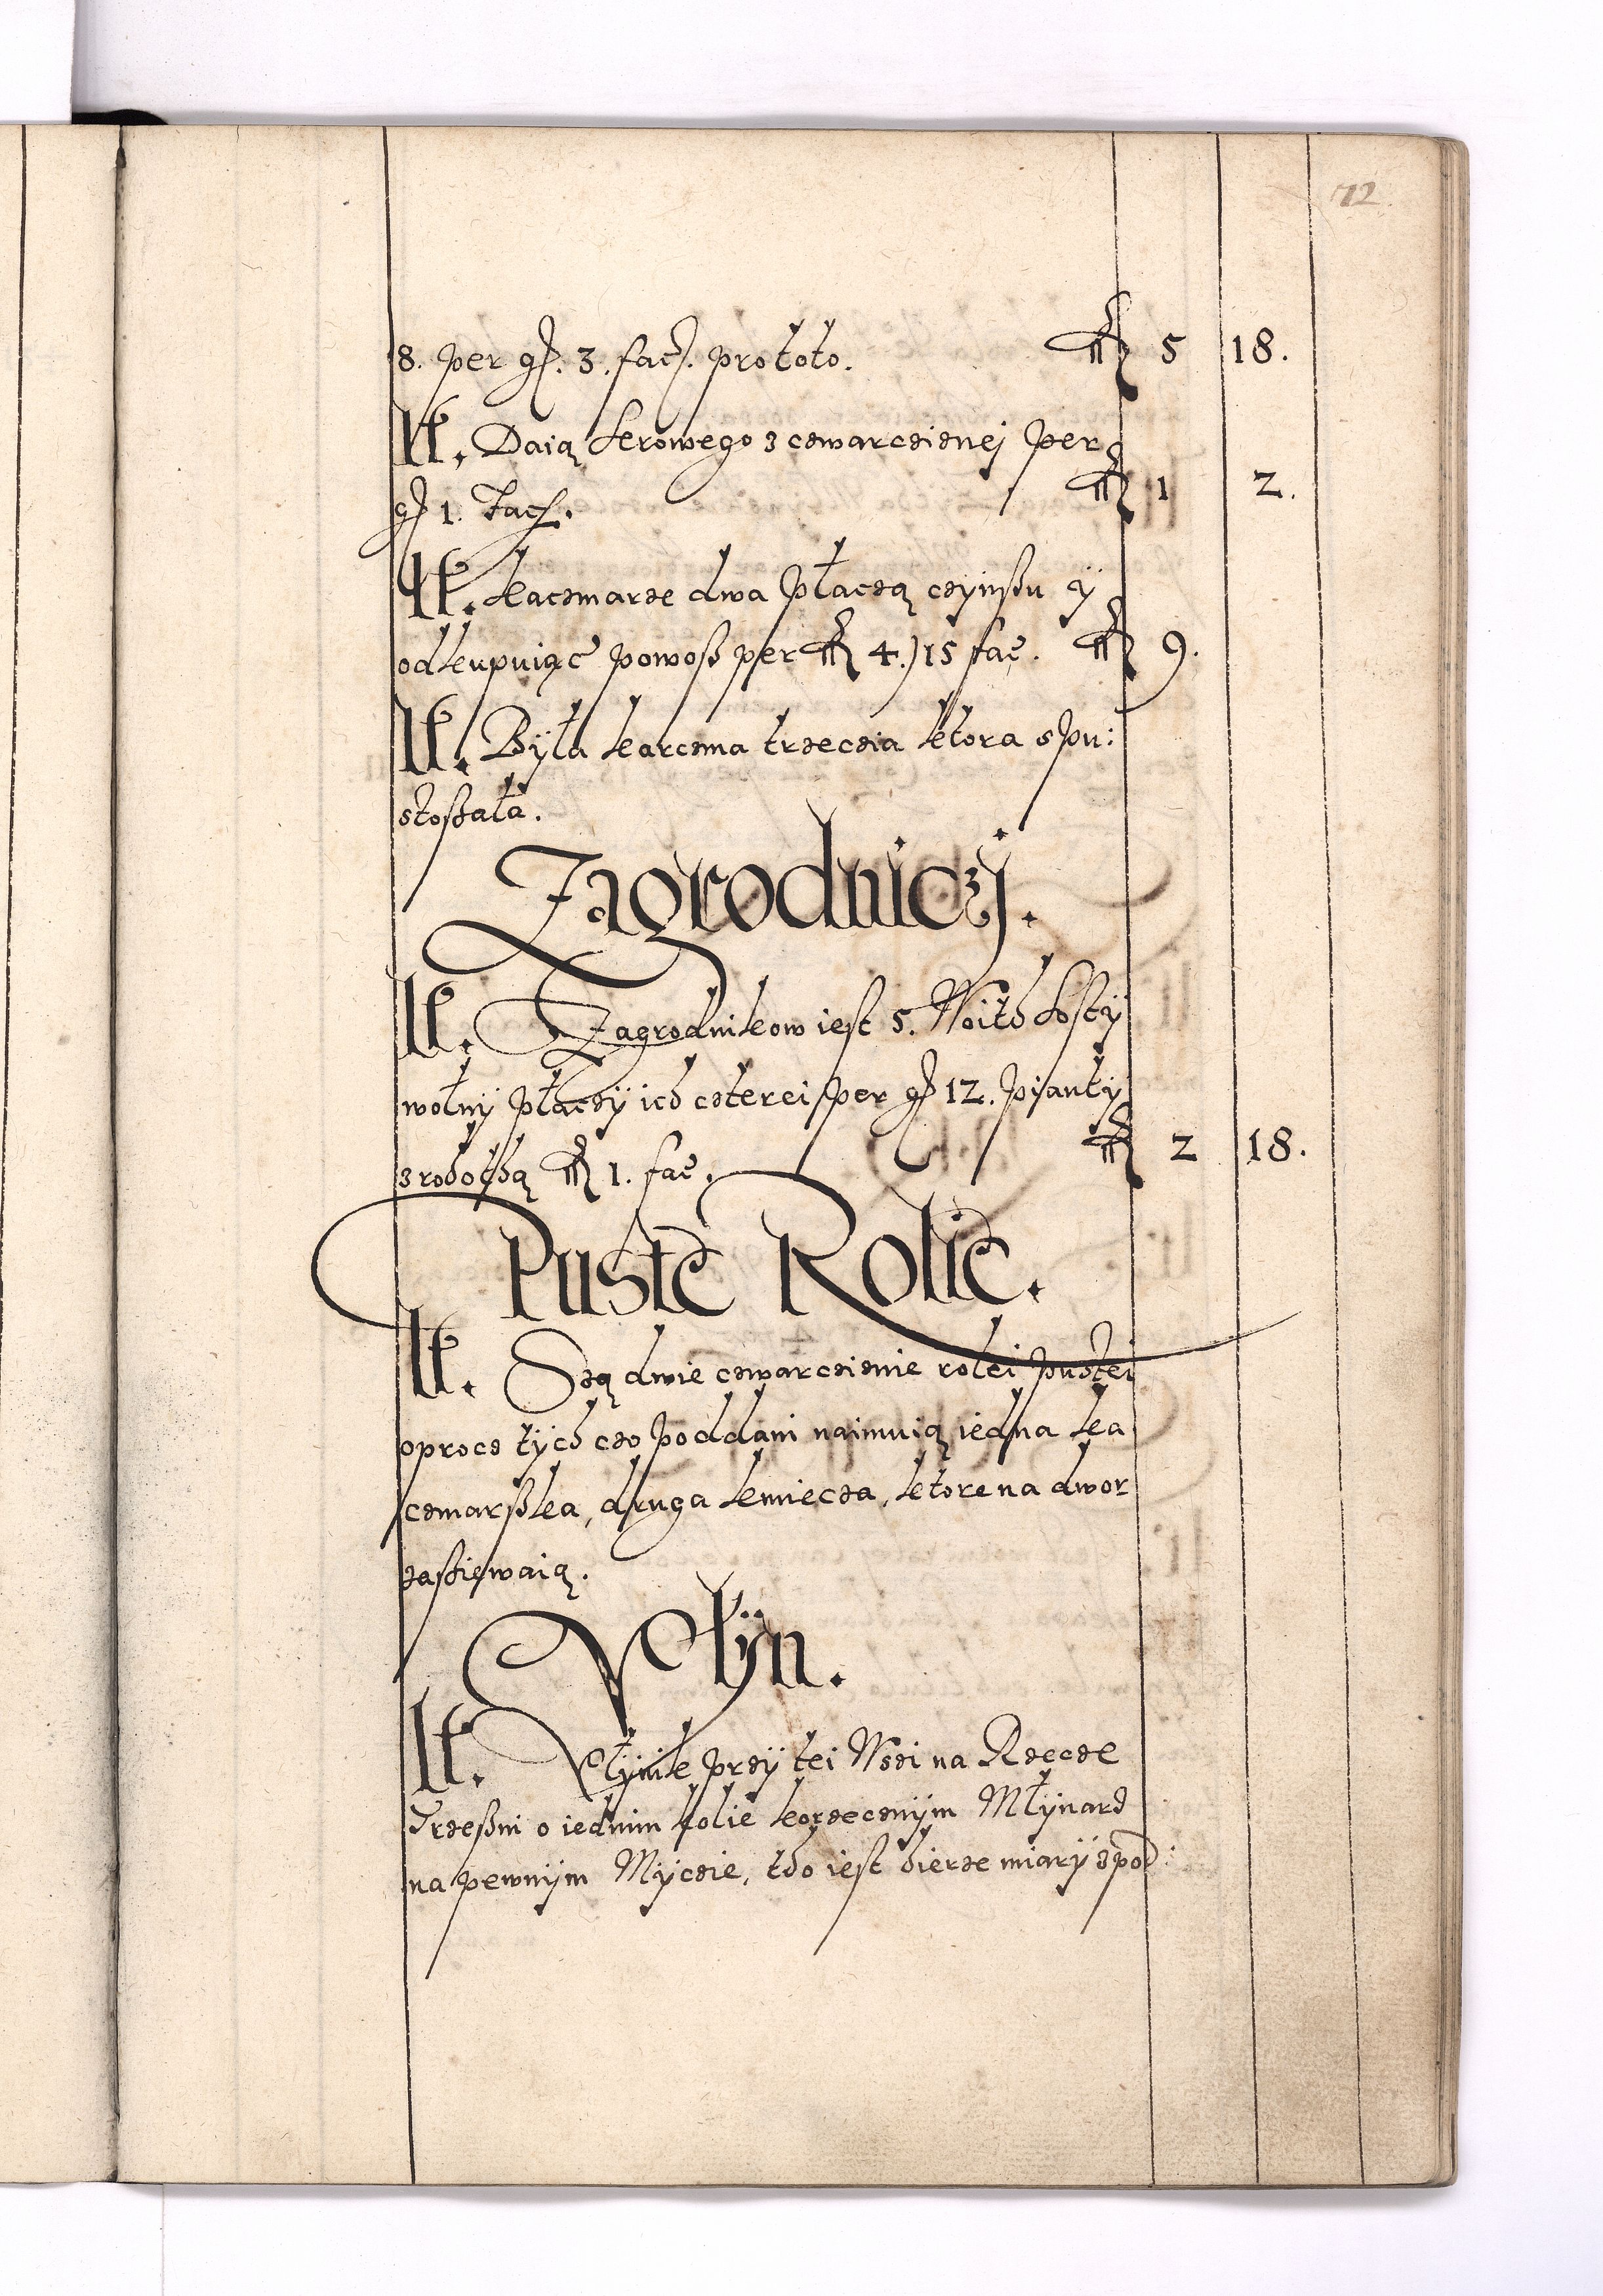 72.
8. per gr. 3. fac. pro toto. fl 5 18.
It. Daią krowego z czwarczienej per
gr 1. Fac. fl 1 2.
It. Kaczmarze dwa płaczą czÿnßu ÿ
odkupuiąc powoß per fl 4.) 15 fac. fl 9.
It. Bÿła karczma trzeczia ktora spu:
stoßała.
Zagrodniczj.
It. Zagrodnikow iest 5. Woith
wolnÿ płaczÿ ich czterei per gr 12. pianti
z robothą fl 1. fac. fl 2 18.
Puste Rolie.
It. Są dwie czwarczienie rolei pustei
oprocz tÿch czo poddani naimuią iedna ka
czmarßka, druga kmiecza, ktore na dwor
zaßiewaią.
Młÿn.
It. Młÿnik przÿ tei Wsi na Rzecze
Trzeßni o iednim kolie korzecznÿm Młÿnarz
na pewnÿm Mÿczie, tho iest bierze miarÿ spod: